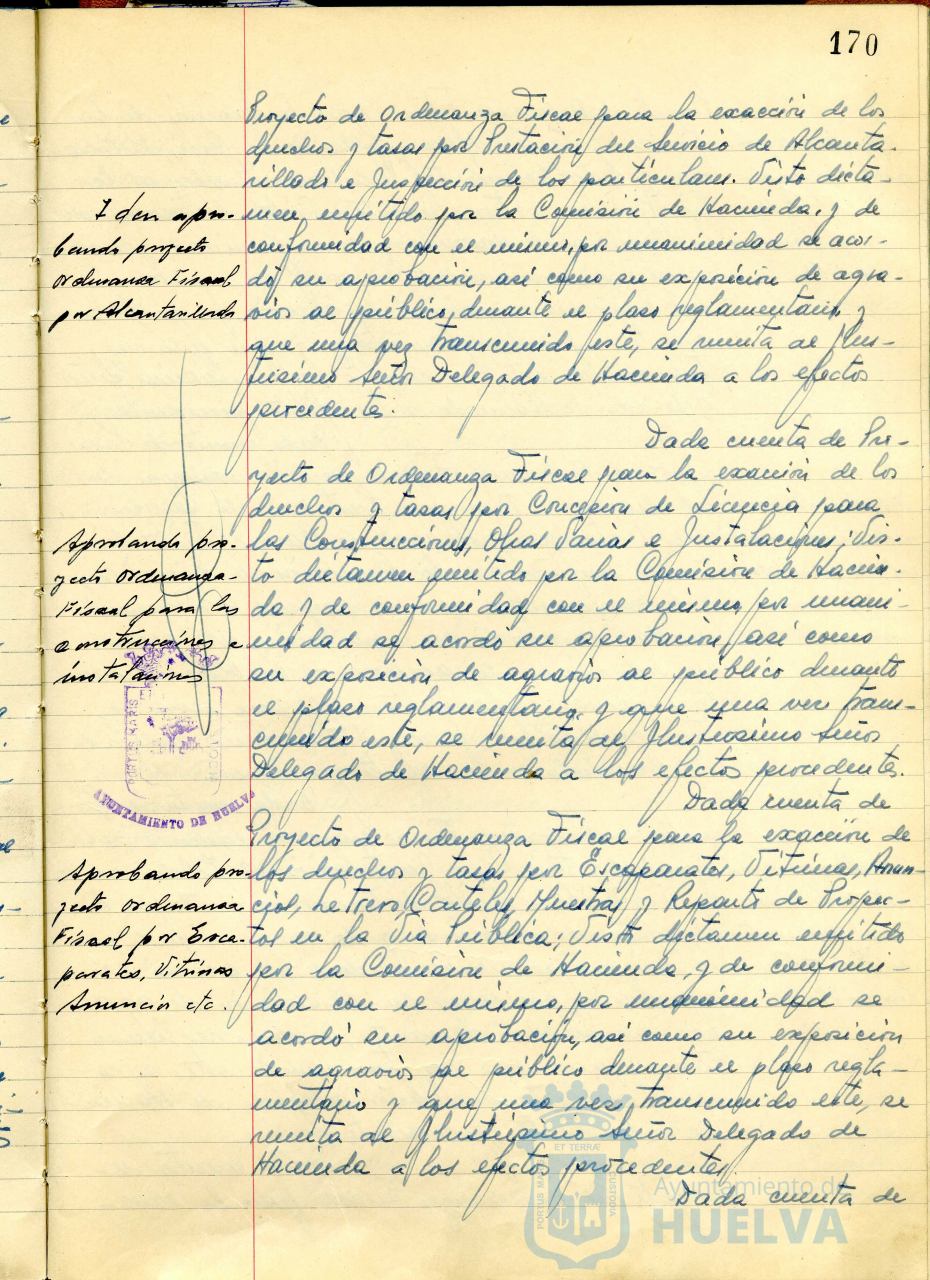 170
Proyecto de Ordenanza Fiscal para la exacción de los
derechos y tasas por Prestación del Servicio de Alcanta-
rillado e Inspección de los particulares. Visto dicta-
men emitido por la Comisión de Hacienda, y de
conformidad con el mismo, por unanimidad se acor-
dó su aprobación, así como su exposición de agra-
vios al público, durante el plazo reglamentario y
que una vez transcurrido este, se remita al Ilus-
trísimo Señor Delegado de Hacienda a los efectos
procedentes.
Idem apro-
bando proyecto
ordenanza Fiscal
por Alcantarillado
Dada cuenta de Pro-
yecto de Ordenanza Fiscal para la exacción de los
derechos y tasas por Concesión de Licencia para
las Construcciones, Obras Varias e Instalaciones; Vis-
to dictamen emitido por la Comisión de Hacien-
da y de conformidad con el mismo, por unani-
midad se acordó su aprobación, así como
su exposición de agravios al público durante
el plazo reglamentario, y que una vez trans-
currido este, se remita al Ilustrísimo Señor
Delegado de Hacienda a los efectos procedentes.
Aprobando pro-
yecto ordenanza
Fiscal para las
construcciones e
instalaciones
PORTUS MARIS
AYUNTAMIENTO DE HUELVA
Dada cuenta de
Proyecto de Ordenanza Fiscal para la exacción de
los derechos y tasas por Escaparates, Vitrinas, Anun-
cios, Letreros, Carteles, Muestras y Reparto de Prospec-
tos en la Vía Pública; Visto dictamen emitido
por la Comisión de Hacienda, y de conformi-
dad con el mismo, por unanimidad se
acordó su aprobación, así como su exposición
de agravios al público durante el plazo regla-
mentario y que una vez transcurrido este, se
remita al Ilustrísimo Señor Delegado de
Hacienda a los efectos procedentes.
Aprobando pro-
yecto ordenanza
Fiscal por Esca-
parates, Vitrinas
Anuncios etc.
Dada cuenta de
PORTUS MARIS
ET TERRÆ
CUSTODIA
Ayuntamiento de
HUELVA